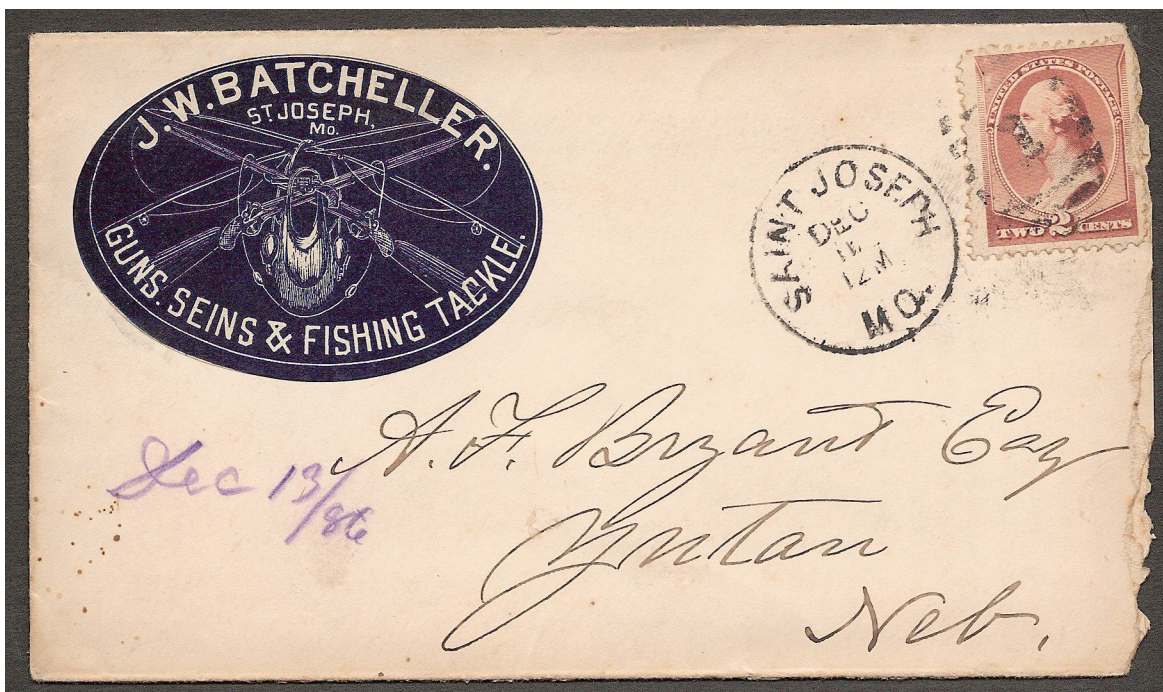 J.W. BATCHELLER.
ST JOSEPH,
MO.
GUNS. SEINS & FISHING TACKLE.
SAINT JOSEPH
DEC
12M
MO.
UNITED STATES POSTAGE
TWO 2 CENTS
A. F. Bryant Esq
Yutan
Neb.
Dec 13/86